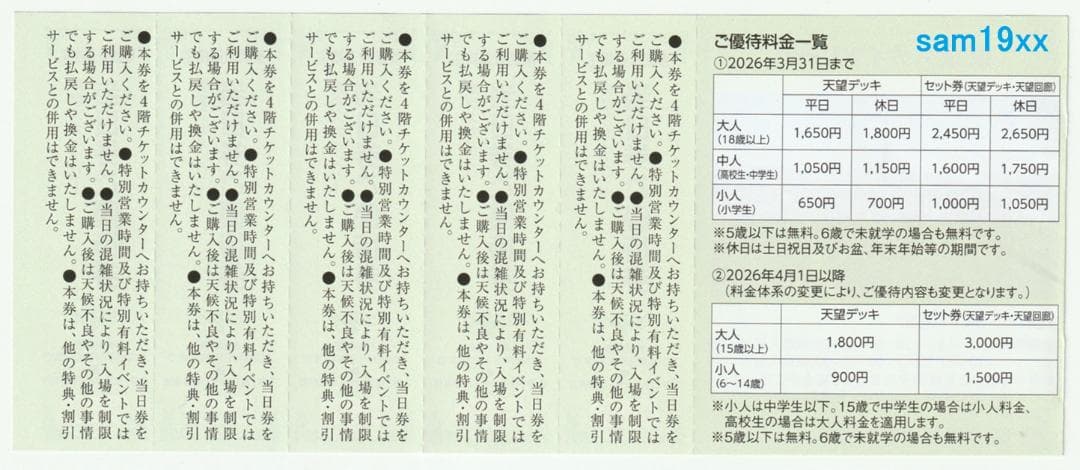 ●本券を4階チケットカウンターへお持ちいただき、当日券を
ご購入ください。●特別営業時間及び特別有料イベントでは
ご利用いただけません。●当日の混雑状況により、入場を制限
する場合がございます。●ご購入後は天候不良やその他の事情
でも払戻しや換金はいたしません。●本券は、他の特典・割引
サービスとの併用はできません。
●本券を4階チケットカウンターへお持ちいただき、当日券を
ご購入ください。●特別営業時間及び特別有料イベントでは
ご利用いただけません。●当日の混雑状況により、入場を制限
する場合がございます。●ご購入後は天候不良やその他の事情
でも払戻しや換金はいたしません。●本券は、他の特典・割引
サービスとの併用はできません。
●本券を4階チケットカウンターへお持ちいただき、当日券を
ご購入ください。●特別営業時間及び特別有料イベントでは
ご利用いただけません。●当日の混雑状況により、入場を制限
する場合がございます。●ご購入後は天候不良やその他の事情
でも払戻しや換金はいたしません。●本券は、他の特典・割引
サービスとの併用はできません。
●本券を4階チケットカウンターへお持ちいただき、当日券を
ご購入ください。●特別営業時間及び特別有料イベントでは
ご利用いただけません。●当日の混雑状況により、入場を制限
する場合がございます。●ご購入後は天候不良やその他の事情
でも払戻しや換金はいたしません。●本券は、他の特典・割引
サービスとの併用はできません。
●本券を4階チケットカウンターへお持ちいただき、当日券を
ご購入ください。●特別営業時間及び特別有料イベントでは
ご利用いただけません。●当日の混雑状況により、入場を制限
する場合がございます。●ご購入後は天候不良やその他の事情
でも払戻しや換金はいたしません。●本券は、他の特典・割引
サービスとの併用はできません。
ご優待料金一覧
sam19xx
①2026年3月31日まで
天望デッキ セット券(天望デッキ・天望回廊)
平日 休日 平日 休日
大人
(18歳以上) 1,650円 1,800円 2,450円 2,650円
中人
(高校生・中学生) 1,050円 1,150円 1,600円 1,750円
小人
(小学生) 650円 700円 1,000円 1,050円
※5歳以下は無料。6歳で未就学の場合も無料です。
※休日は土日祝日及びお盆、年末年始等の期間です。
②2026年4月1日以降
(料金体系の変更により、ご優待内容も変更となります。)
天望デッキ セット券(天望デッキ・天望回廊)
大人
(15歳以上) 1,800円 3,000円
小人
(6~14歳) 900円 1,500円
※小人は中学生以下。15歳で中学生の場合は小人料金、
高校生の場合は大人料金を適用します。
※5歳以下は無料。6歳で未就学の場合も無料です。